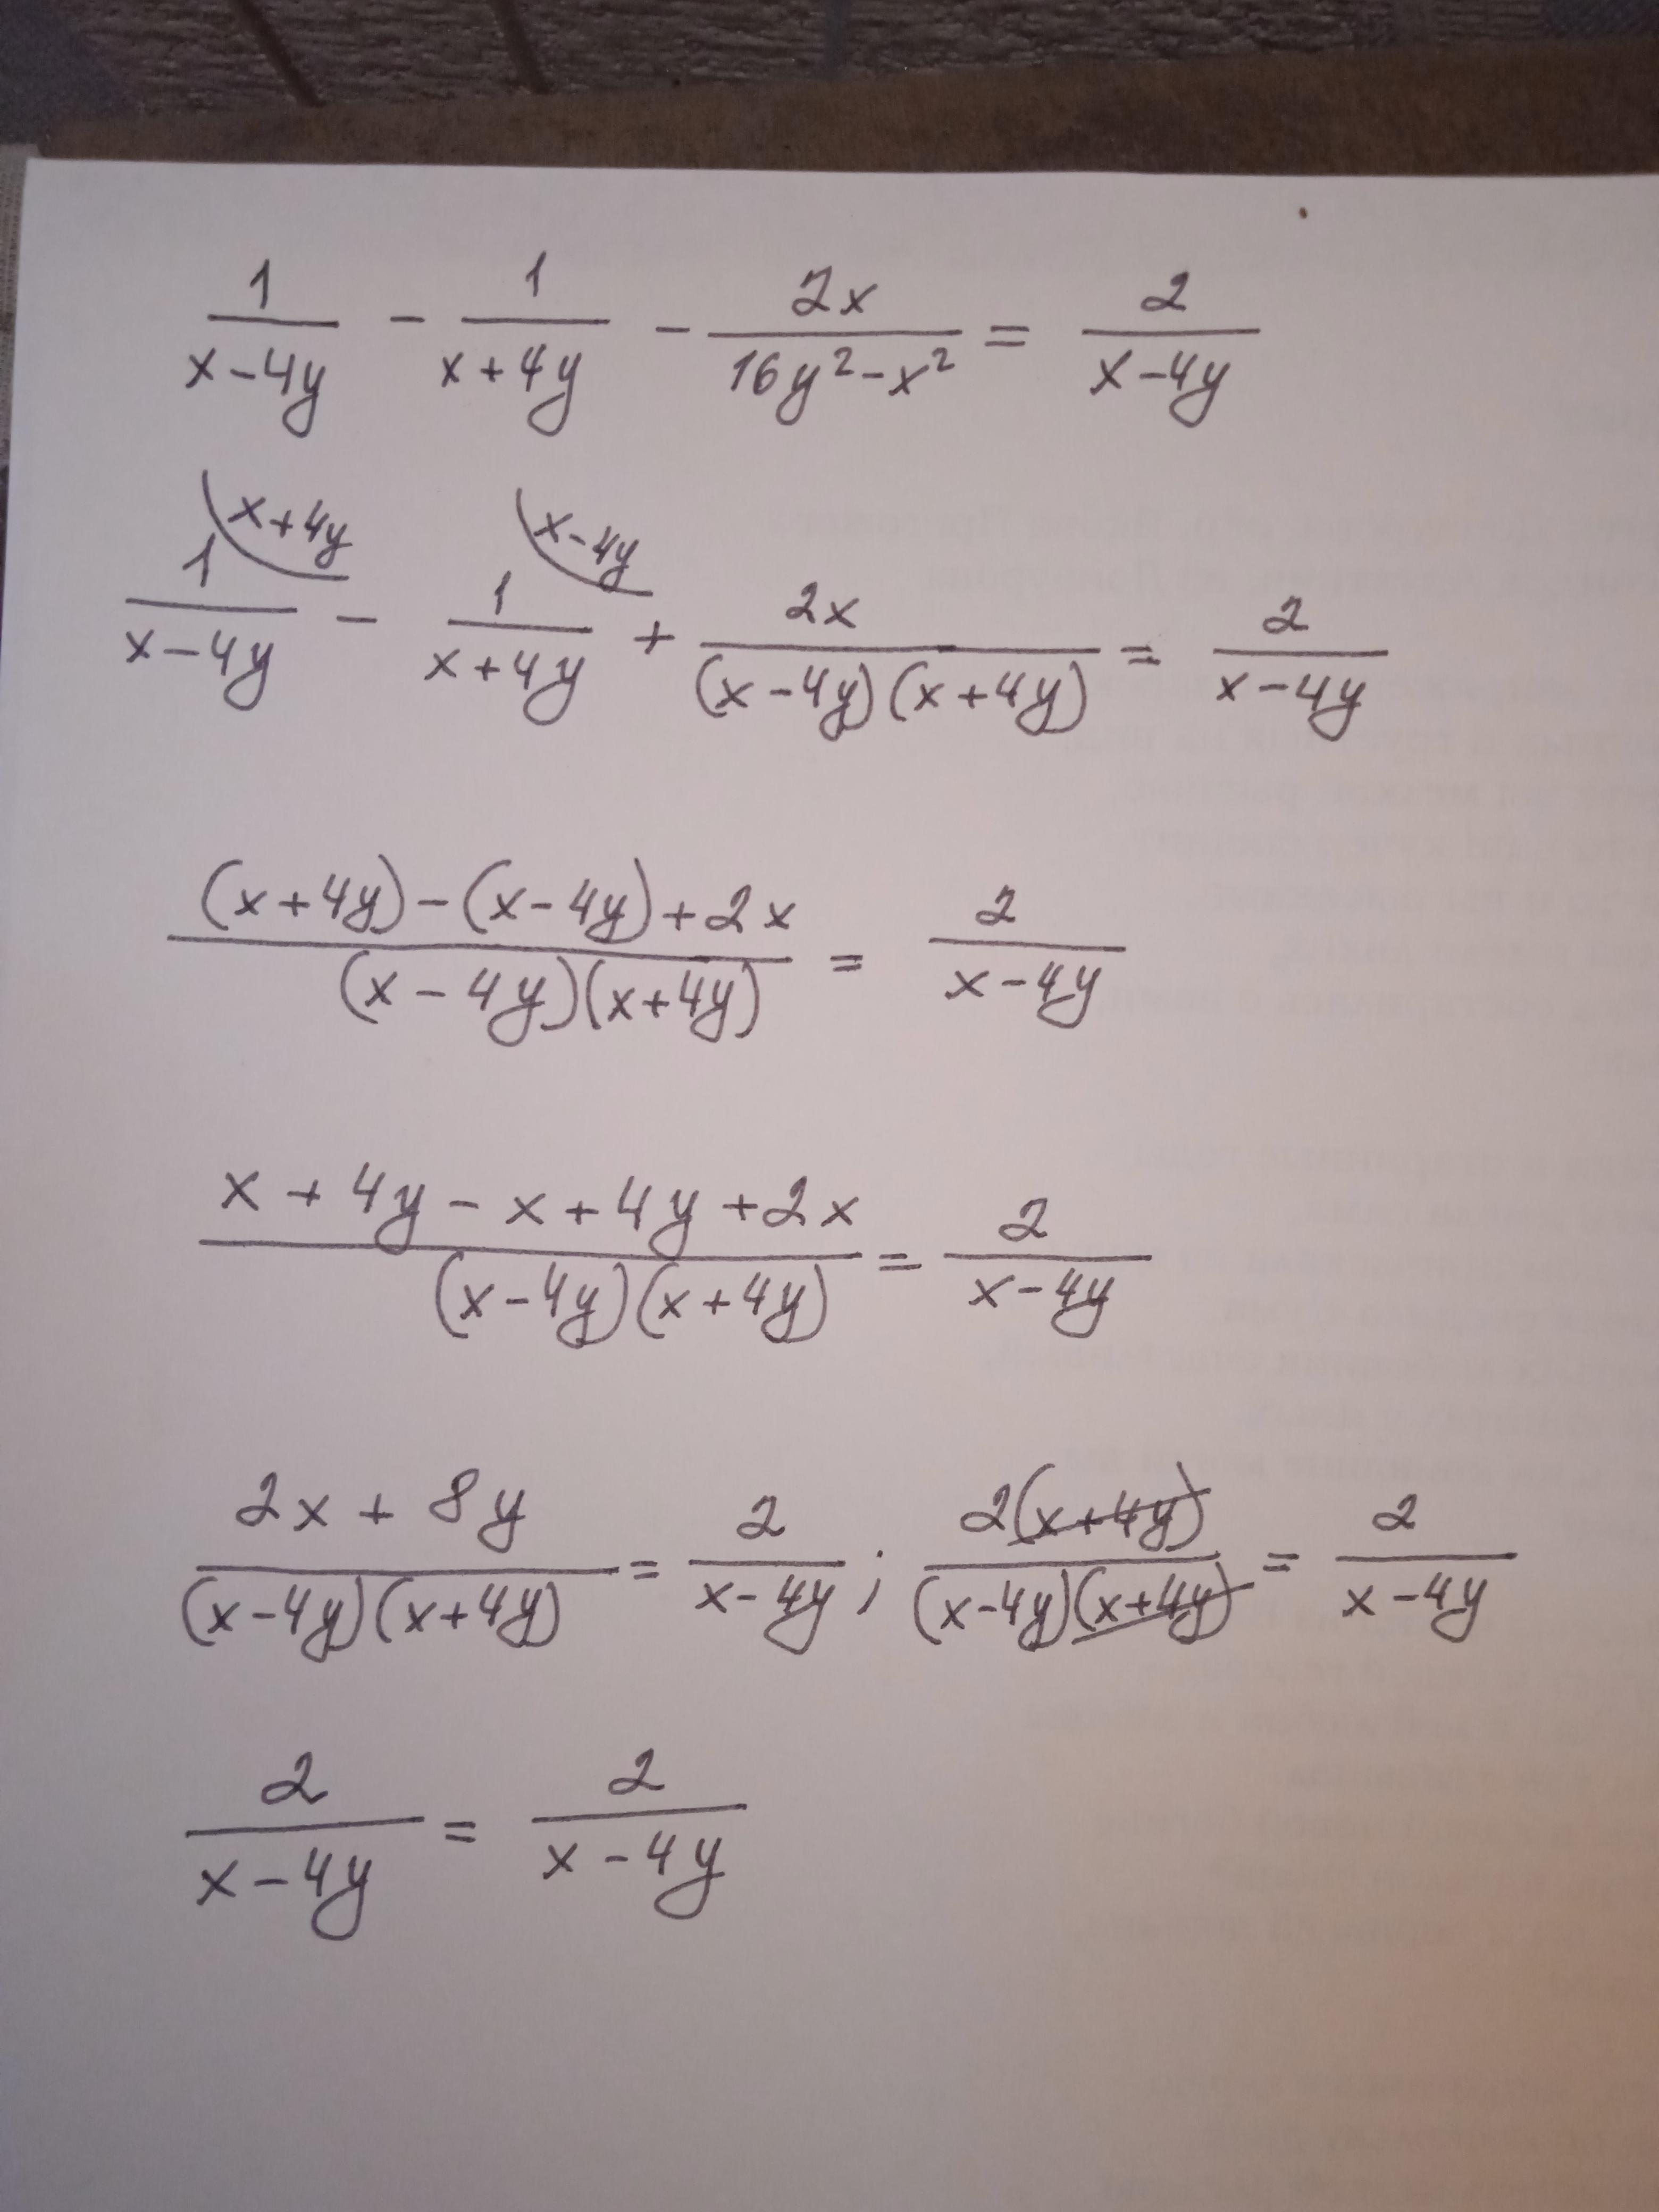 1/(x-4y) - 1/(x+4y) - 2x/(16y²-x²) = 2/(x-4y)
1\x+4y/(x-4y) - 1\x-4y/(x+4y) + 2x/((x-4y)(x+4y)) = 2/(x-4y)
((x+4y)-(x-4y)+2x)/((x-4y)(x+4y)) = 2/(x-4y)
(x+4y-x+4y+2x)/((x-4y)(x+4y)) = 2/(x-4y)
(2x+8y)/((x-4y)(x+4y)) = 2/(x-4y); 2(x+4y)/((x-4y)(x+4y)) = 2/(x-4y)
2/(x-4y) = 2/(x-4y)